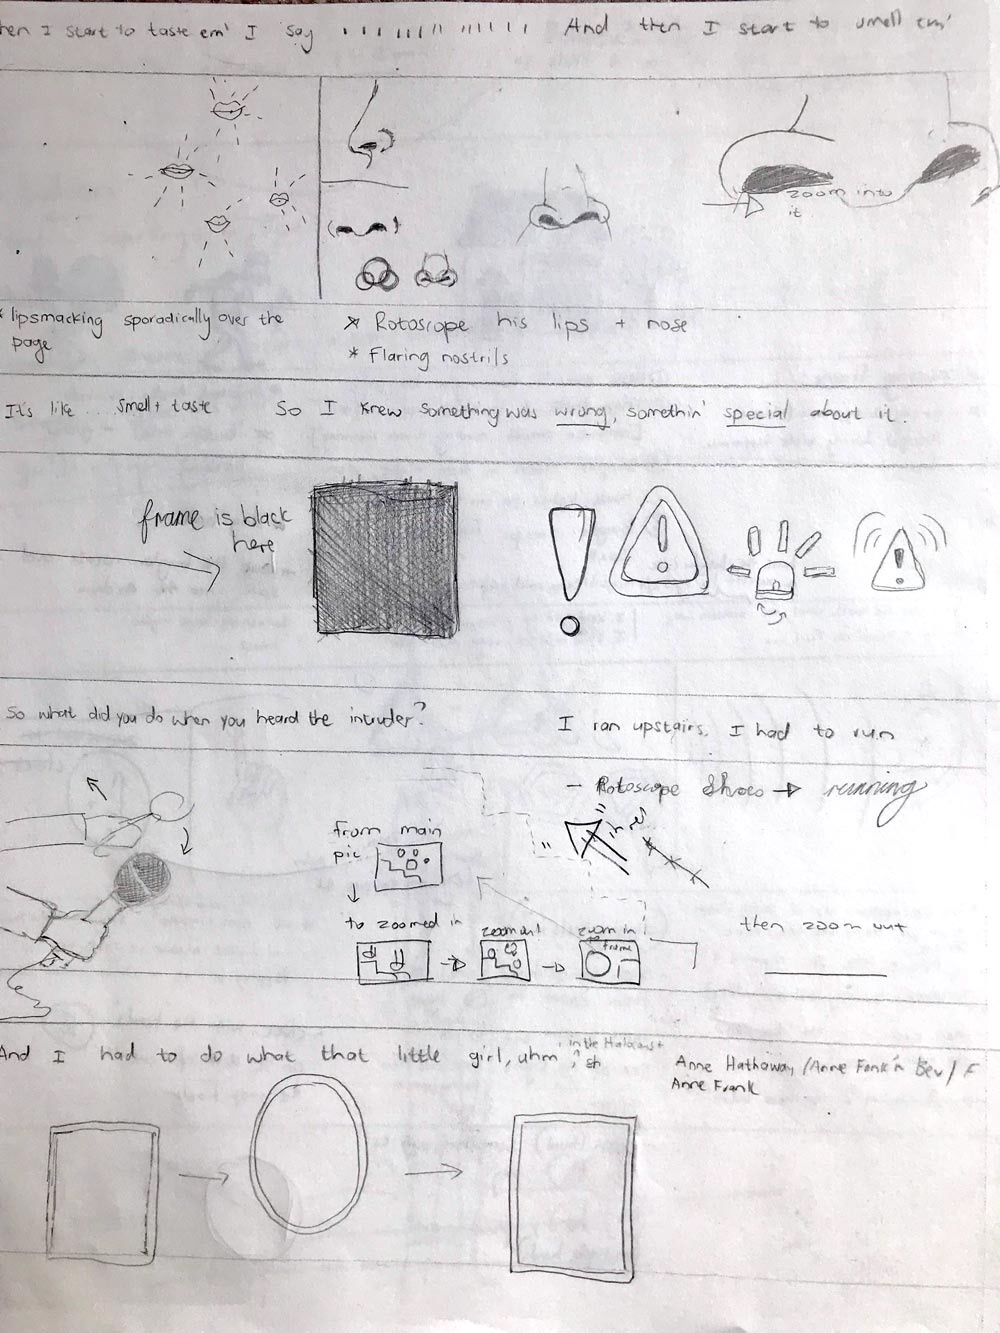 hen I start to taste em' I say And then I start to smell em'
zoom into
it.
* lipsmacking sporadically over the
page
* Rotoscope his lips + nose
* Flaring nostrils
It's like ... smell + taste So I knew something was wrong, somethin' special about it.
frame is black
here
So what did you do when you heard the intruder? I ran upstairs. I had to run
- Rotoscope shoes → running
from main
pic
to zoomed in
zoom out
zoom in
frame
then zoom out
And I had to do what that little girl, uhm, in the Holocaust
Anne Hathaway / Anne Fonk'n Bev / F
Anne Frank